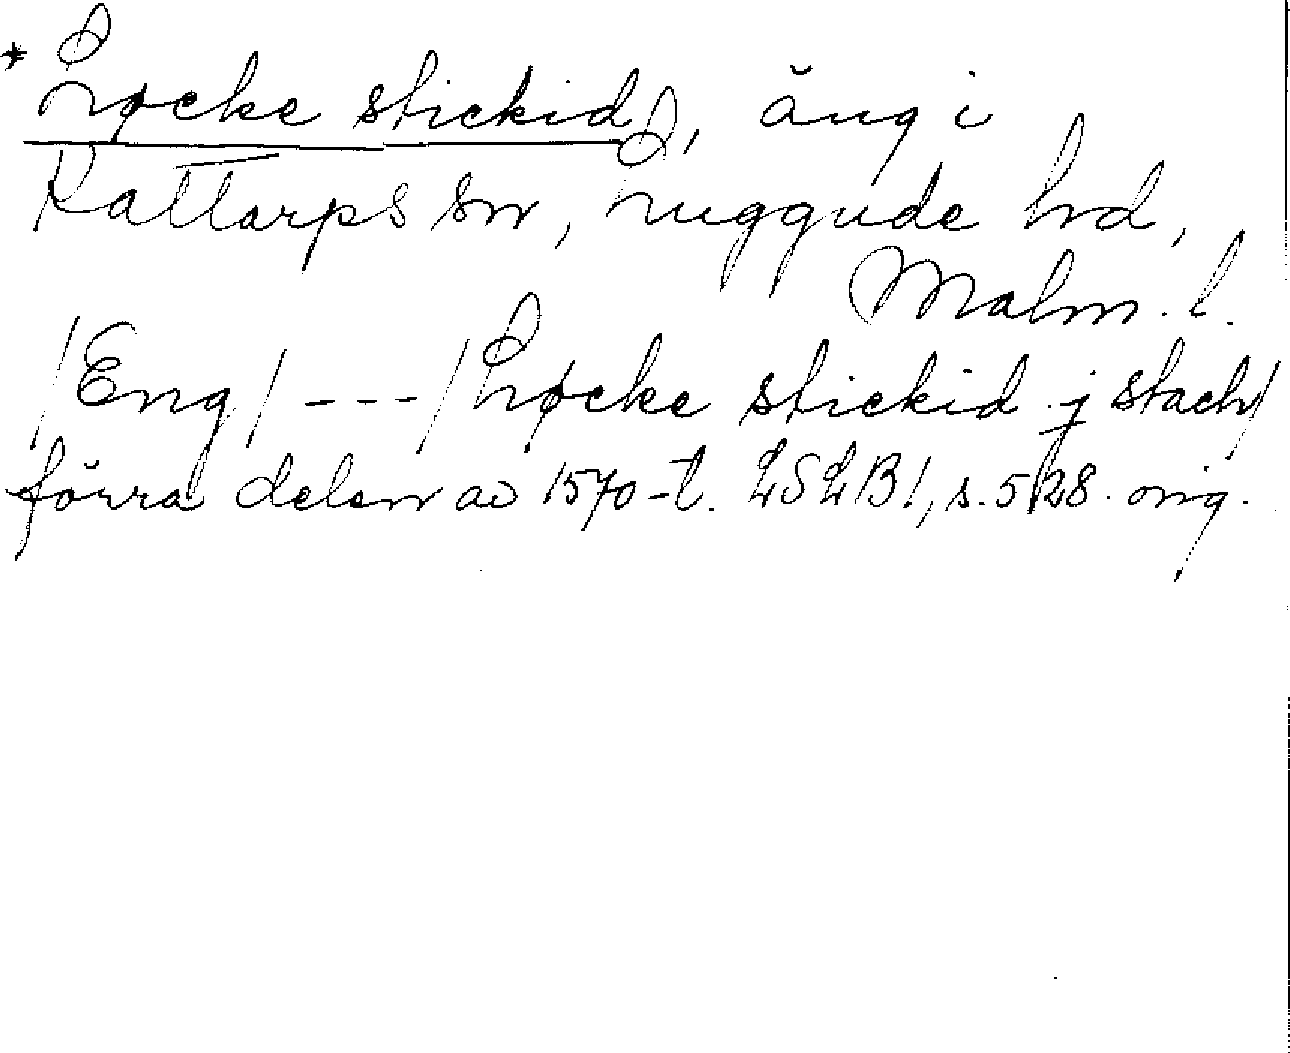 * Løcke stickid, äng i
Kattarps sn, Luggude hd,
Malm. l.
/Eng/ --- /Løcke stickid j stach/
förra delen av 1570-t. LSLB 1, s. 528. orig.